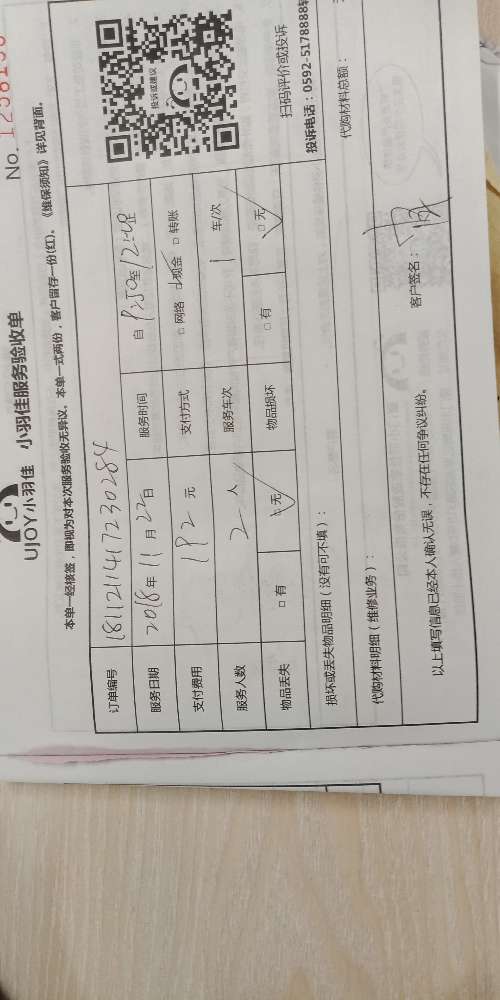 No. 1258156
UJOY小羽佳 小羽佳服务验收单
本单一经核签，即视为对本次服务验收无异议，本单一式两份，客户留存一份(红)。《维保须知》详见背面。
订单编号 181121141723 0284
服务日期 2018年 11 月 22 日 服务时间 自
支付费用 192 元 支付方式 □ 网络 □ 现金 □ 转账
服务人数 2 人 服务车次 1 车/次
物品丢失 □ 有 □ 无 物品损坏 □ 有 □ 无
投诉或建议
扫码评价或投诉
投诉电话：0592-5178888转
损坏或丢失物品明细（没有可不填）：
代购材料明细（维修业务）： 代购材料总额：
以上填写信息已经本人确认无误，不存在任何争议纠纷。 客户签名：